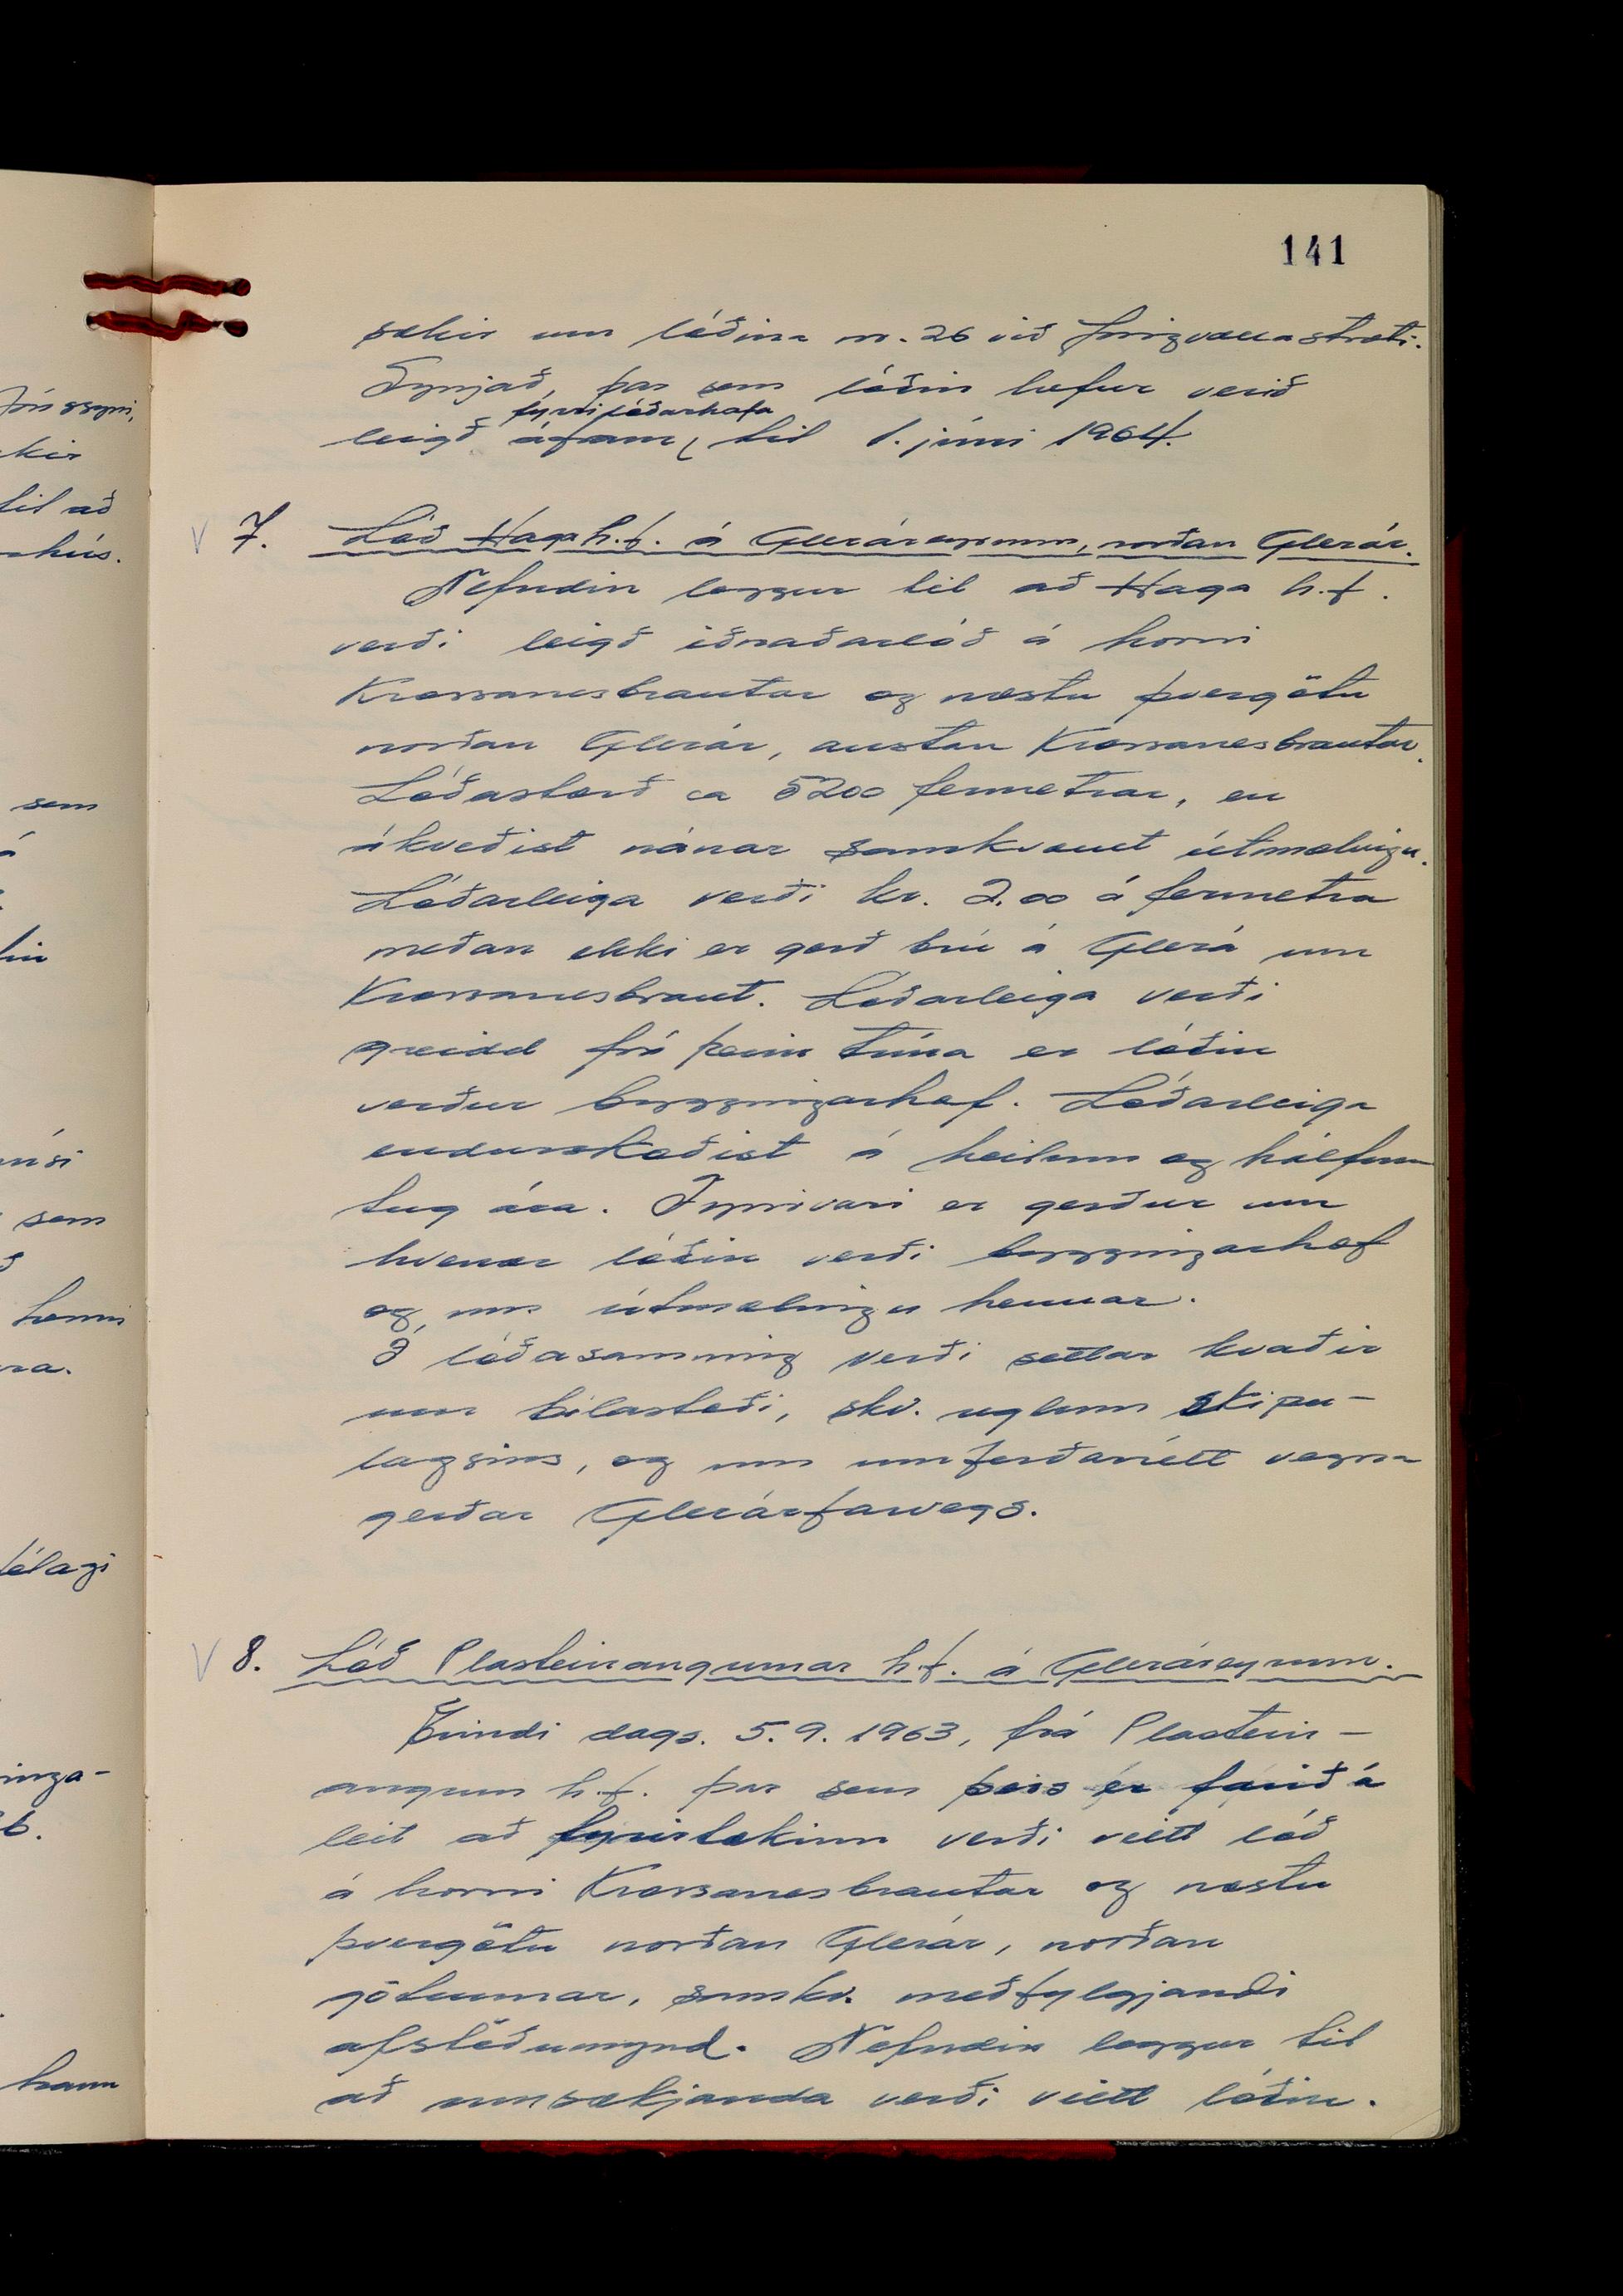 141
sækir um lóðina nr. 26 við Þingvallastræti.
Synjað, þar sem lóðin hefur verið
fyrri lóðarhafa
leigð áfram, til 1. júní 1964.
V 7. Lóð Haga h.f. á Gleráreyrum, norðan Glerár.
Nefndin leggur til að Haga h.f.
verði leigð iðnaðarlóð á horni
Krossanesbrautar og næstu þvergötu
norðan Glerár, austan Krossanesbrautar.
Lóðastærð ca 5200 fermetrar, en
ákveðist nánar samkvæmt útmælingu.
Lóðarleiga verði kr. 2.00 á fermetra
meðan ekki er gerð brú á Glerá um
Krossanesbraut. Lóðarleiga verði
greidd frá þeim tíma er lóðin
verður byggingarhæf. Lóðarleiga
endurskoðist á heilum og hálfum
tug ára. Fyrirvari er gerður um
hvenær lóðin verði byggingarhæf
og um útmælingu hennar.
Í lóðasamning verði settar kvaðir
um bílastæði, skv. reglum skipu-
lagsins, og um umferðarrétt vegna
gerðar Glerárfarvegs.
V 8. Lóð Plasteinangrunar h.f. á Gleráreyrum.
Erindi dags. 5.9.1963, frá Plastein-
angrun h.f. þar sem þess er farið á
leit að fyrirtækinu verði veitt lóð
á horni Krossanesbrautar og næstu
þvergötu norðan Glerár, norðan
götunnar, samkv. meðfylgjandi
afstöðumynd. Nefndin leggur til
að umsækjanda verði veitt lóðin.
Jónssyni,
til að
sem
á
sem
henni
hann